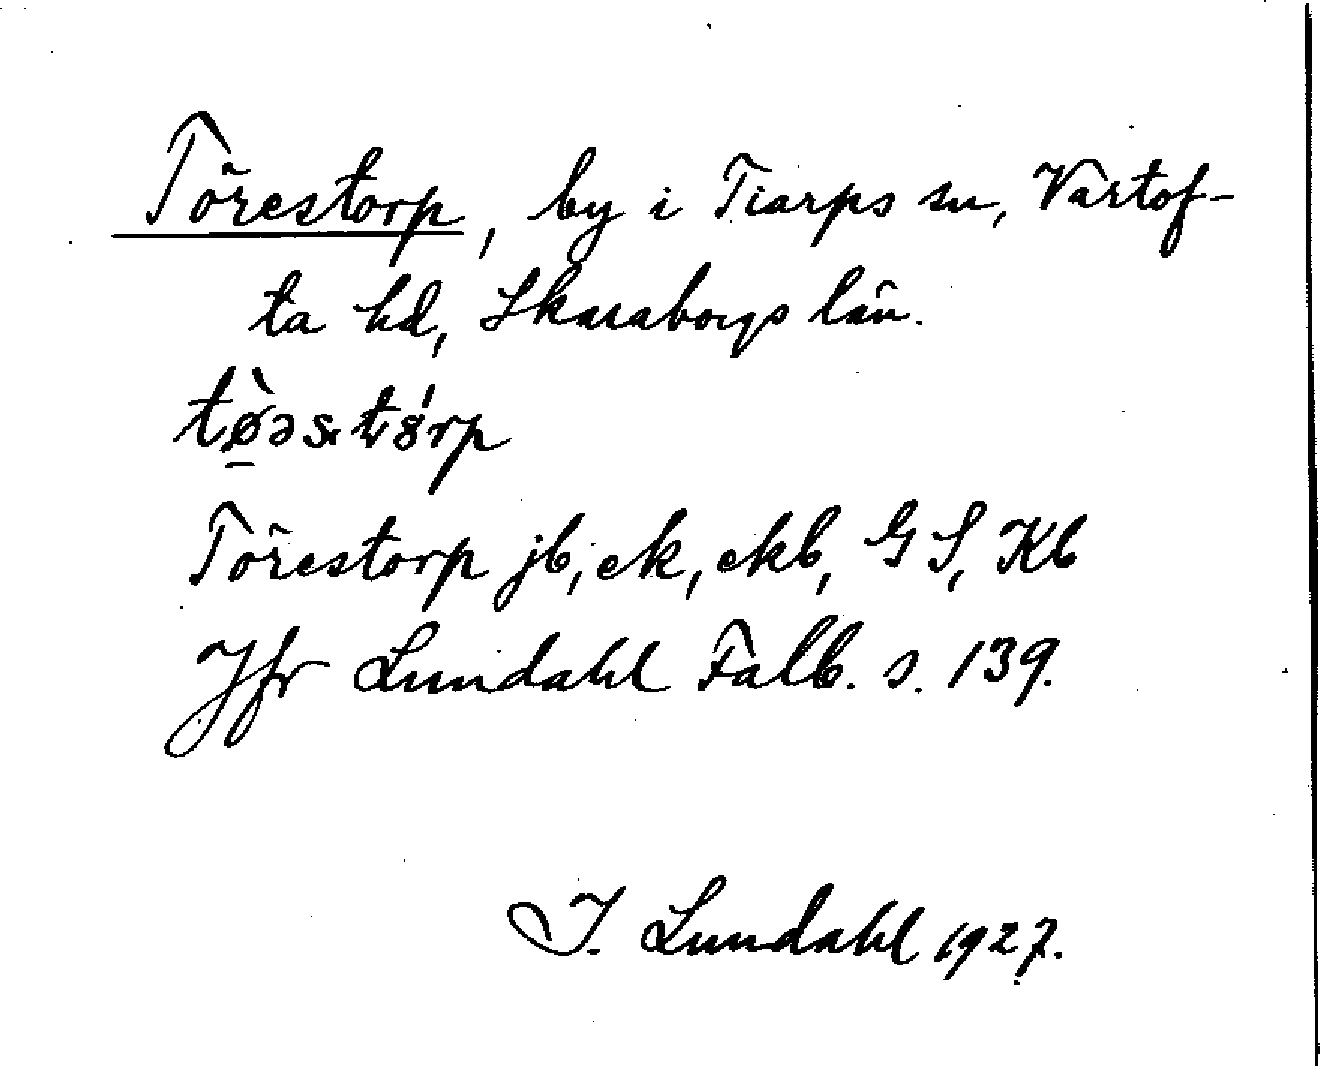 Törestorp, by i Tiarps sn, Vartof-
ta hd, Skaraborgs län.
tø̠̀əstȣ́rp
Törestorp jb, ek, ekb, GS, Kb
Jfr Lundahl Falb. s. 139.
I. Lundahl 1927.